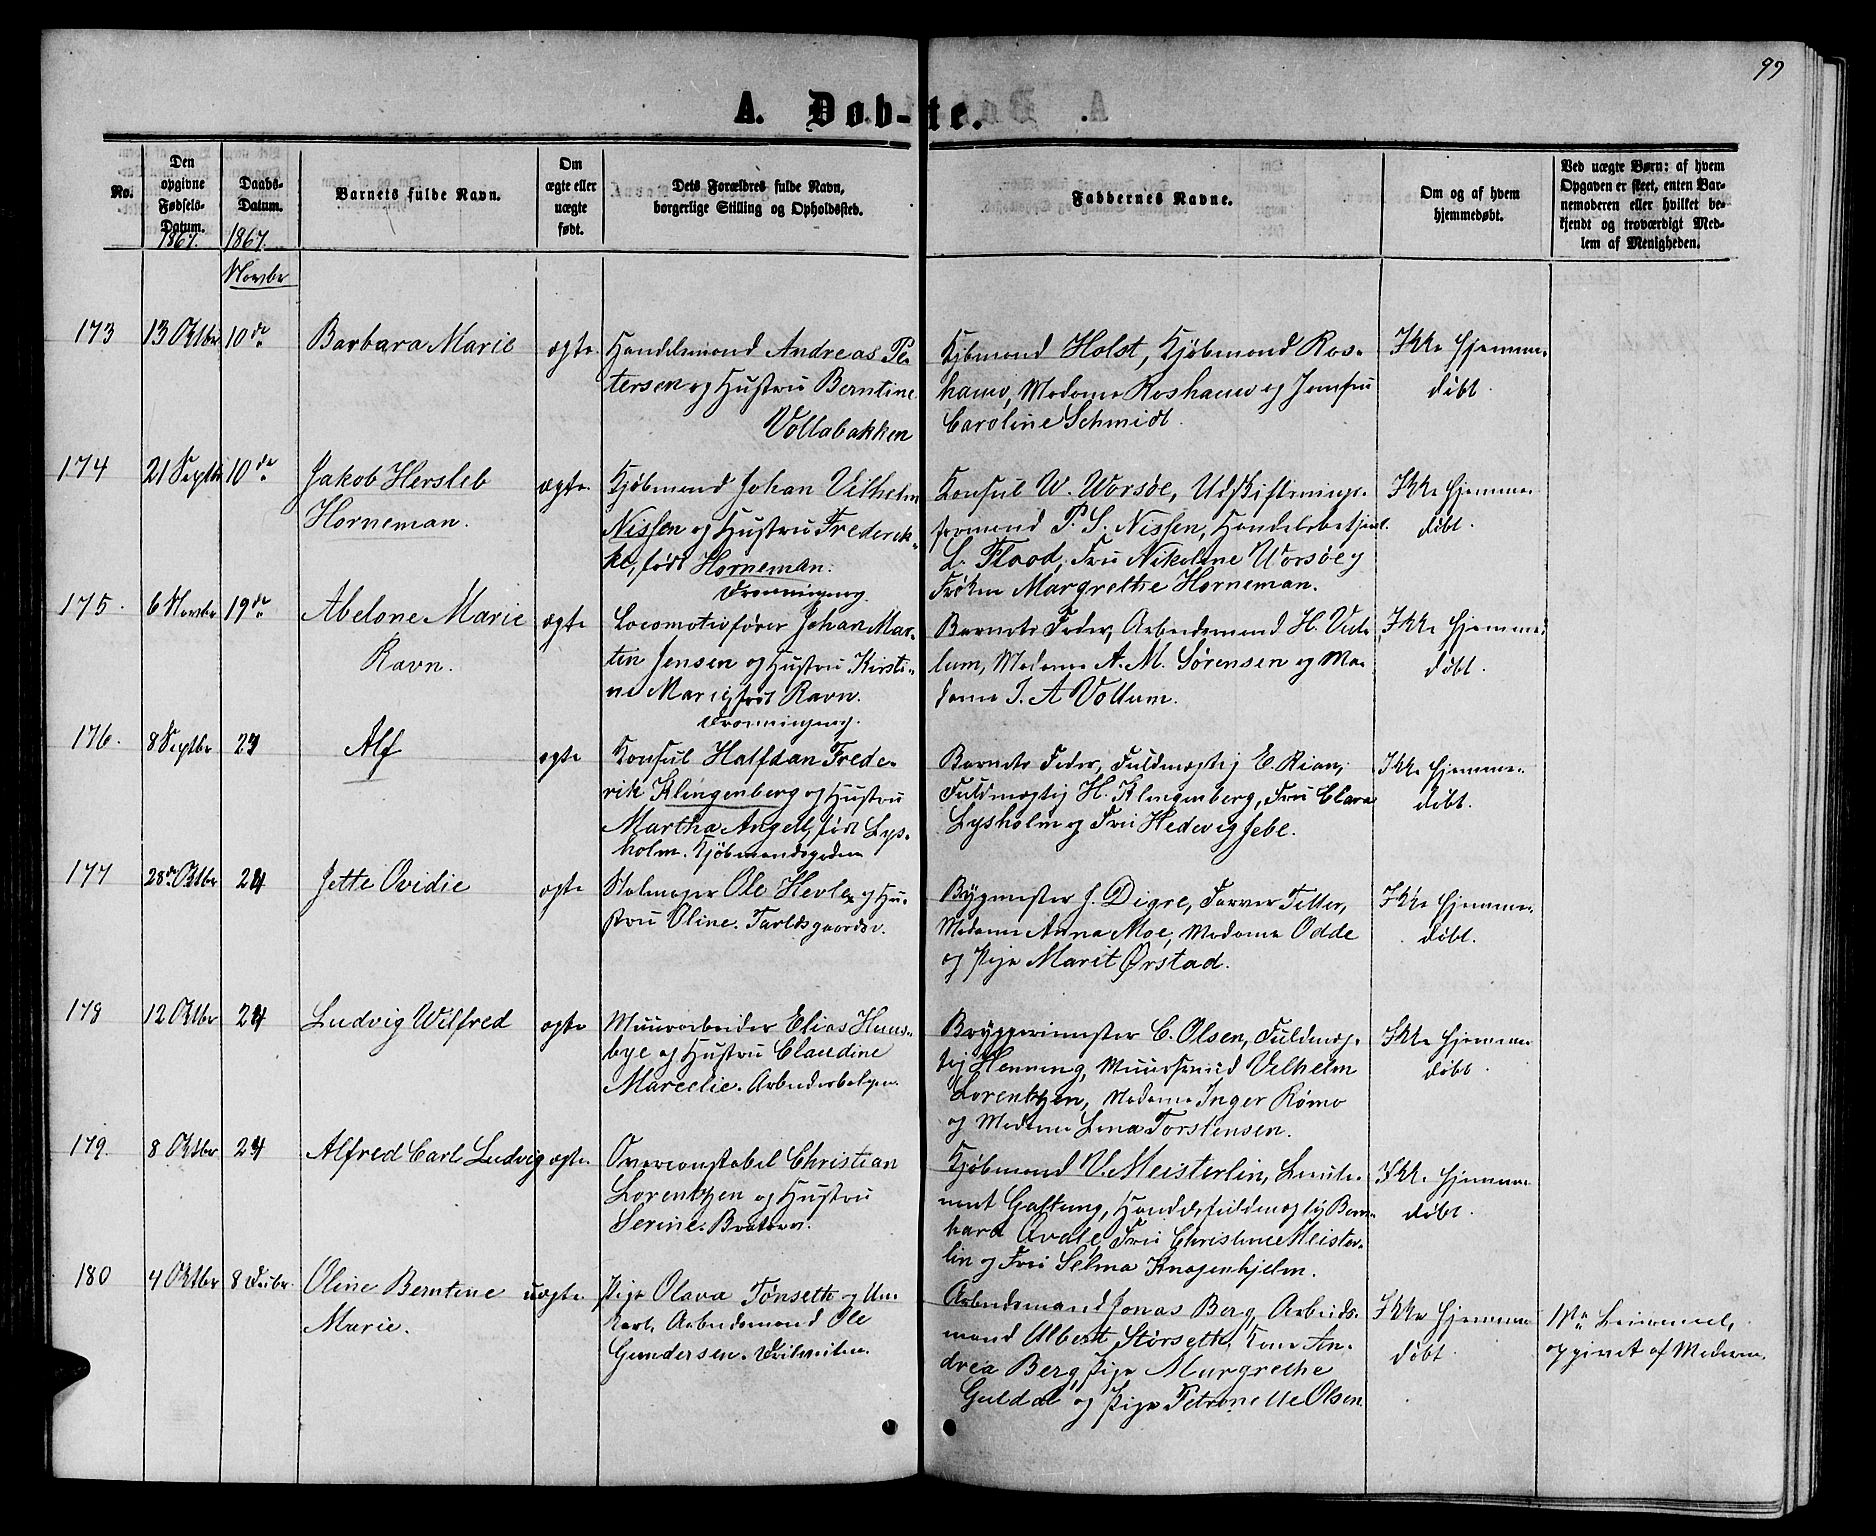 99
A. Døb-te.
No.
Den opgivne Fødsels-Datum.
Daabs-Datum.
Barnets fulde Navn.
Om ægte eller uægte født.
Dets Forældres fulde Navn, borgerlige Stilling og Opholdssted.
Faddernes Navne.
Om og af hvem hjemmedøbt.
Ved uægte Børn: af hvem Opgaven er skeet, enten Barnemoderen eller hvilket bekjendt og troværdigt Medlem af Menigheden.
1867. 1867.
Novbr
173 13 Oktbr 10de Barbara Marie ægte
Handelsmand Andreas Pe-
tersen og Hustru Berntine
Vollabakken
Kjøbmand Holst, Kjøbmand Ros-
hauw, Madame Roshauw og Jomfru
Caroline Schmidt.
Ikke hjemme-
døbt.
174 21 Septbr 10de Jakob Hersleb
Horneman. ægte
Kjøbmand Johan Vilhelm
Nissen og Hustru Frederik-
ke, født Horneman.
Dronningensg.
Konsul W. Worsøe, Udskiftnings-
formand P. S. Nissen, Handelsbetjent
L. Flood, Fru Nikoline Worsøe og
Frøken Margrethe Horneman.
Ikke hjemme-
døbt.
175. 6 Novbr 19de Abelone Marie
Ravn. ægte
Locomotivfører Johan Mar-
tin Jensen og Hustru Kirsti-
ne Marie, født Ravn.
Dronningensg.
Barnets Fader, Arbeidsmand H.
Madame A. M. Sørensen og Ma-
dame J. A Vollum.
Ikke hjemme-
døbt.
176. 8 Septbr 24 Alf ægte
Konsul Halfdan Frede-
rik Klingenberg og Hustru
Martha Angell, født Lys-
holm. Kjøbmandsgaden
Barnets Fader, Fuldmægtig E. Rian,
Fuldmægtig H. Klingenberg, Fru Clara
Lysholm og Fru Hedevig Jebe.
Ikke hjemme-
døbt.
177 28de Oktbr 24 Jette Ovidie ægte
Stolmager Ole Hevle og Hu-
stru Oline.
Bygmester J. Digre, Farver Tetter,
Madame Anna Moe, Madame Odde
og Pige Marit Ørstad.
Ikke hjemme-
døbt.
178 12 Oktbr 24 Ludvig Wilfred ægte
Muurarbeider Elias Huus-
bye og Hustru Claudine
Marcelie.
Bryggerimester C. Olsen, Fuldmæg-
tig Henning, Muursvend Vilhelm
Lorentzen, Madame Inger Rømo
og Madame Lina Torstensen.
Ikke hjemme-
døbt.
179. 8 Oktbr 24 Alfred Carl Ludvig ægte
Overconstabel Christian
Lorentzen og Hustru
Serine. Bratøren.
Kjøbmand V. Meisterlin, Lieute-
nant Galtung, Handelsfuldmægtig Bern-
hard Fru Christine Meister-
lin og Fru Selma Knagenhjelm.
Ikke hjemme-
døbt.
180 4 Oktbr 8 Decbr. Oline Berntine
Marie. uægte
Pige Olava Tønseth og Un-
karl, Arbeidsmand Ole
Gundersen.
Arbeidsmand Jonas Berg, Arbeids-
mand Albert Størseth, Kone An-
drea Berg, Pige Margrethe
Guldal og Pige Petronelle Olsen.
Ikke hjemme-
døbt
1ste Leiermaal,
opgivet af Moderen.